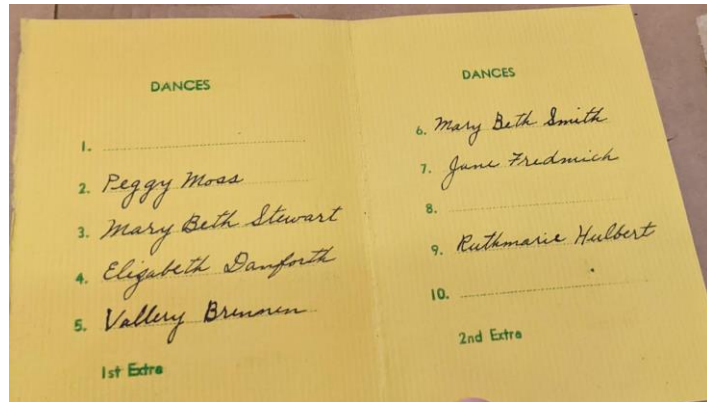 DANCES
1.
2. Peggy Moss
3. Mary Beth Stewart
4. Elizabeth Danforth
5. Vallery Brennen
1st Extra
DANCES
6. Mary Beth Smith
7. Jane Fredmich
8.
9. Ruthmarie Hulbert
10.
2nd Extra